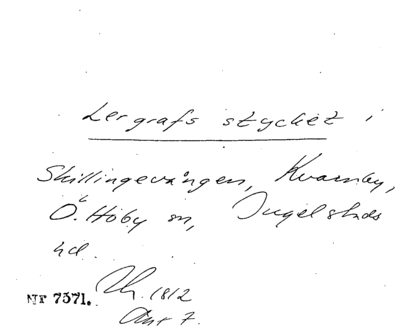 Lergrafs stycket i
Skillingevången, Kvarnby,
Ö. Hoby sn, Ingelstads
hd.
Nr 7571. 1812